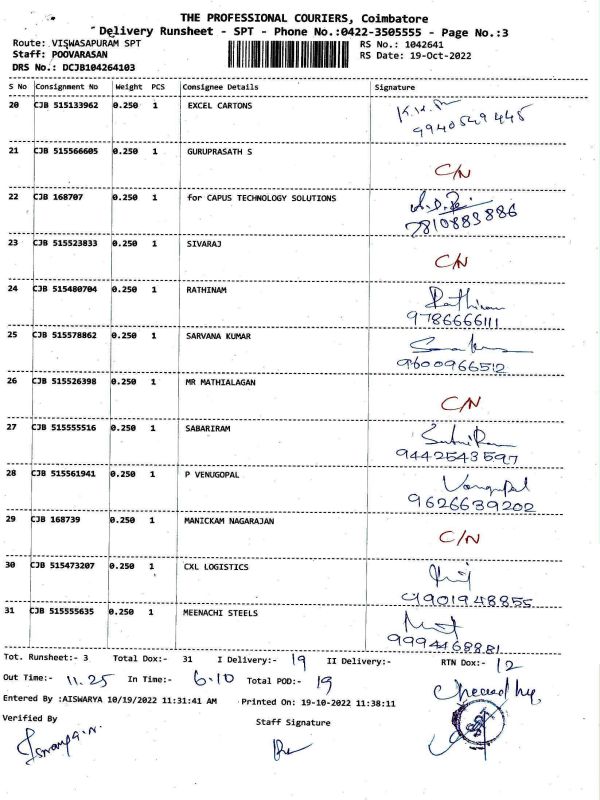 THE PROFESSIONAL COURIERS, Coimbatore
Delivery Runsheet - SPT - Phone No.:0422-3505555 - Page No.:3
Route: VISWASAPURAM SPT
RS No.: 1042641
Staff: POOVARASAN
RS Date: 19-Oct-2022
DRS No.: DCJB104264103
S No Consignment No Weight PCS Consignee Details Signature
20 CJB 515133962 0.250 1 EXCEL CARTONS
9940549445
21 CJB 515566605 0.250 1 GURUPRASATH S C/N
22 CJB 168707 0.250 1 for CAPUS TECHNOLOGY SOLUTIONS
7810883886
23 CJB 515523833 0.250 1 SIVARAJ C/N
24 CJB 515480704 0.250 1 RATHINAM Rathinam
9786666111
25 CJB 515578862 0.250 1 SARVANA KUMAR
9600966512
26 CJB 515526398 0.250 1 MR MATHIALAGAN C/N
27 CJB 515555516 0.250 1 SABARIRAM
9442543597
28 CJB 515561941 0.250 1 P VENUGOPAL
9626639202
29 CJB 168739 0.250 1 MANICKAM NAGARAJAN C/N
30 CJB 515473207 0.250 1 CXL LOGISTICS
9901948855
31 CJB 515555635 0.250 1 MEENACHI STEELS
9994468881
Tot. Runsheet:- 3 Total Dox:- 31 I Delivery:- 19 II Delivery:- RTN Dox:- 12
Out Time:- 11.25 In Time:- 6.10 Total POD:- 19
Entered By :AISWARYA 10/19/2022 11:31:41 AM Printed On: 19-10-2022 11:38:11
Verified By Staff Signature